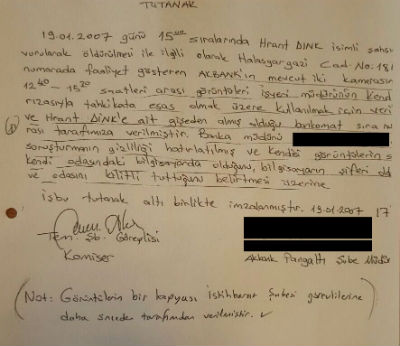 TUTANAK
19.01.2007 günü 15:00 sıralarında Hrant DİNK isimli şahsı
vurularak öldürülmesi ile ilgili olarak Halaskargazi Cad. No:181
numarada faaliyet gösteren AKBANK'ın mevcut iki kamerasın
12:40 - 15:20 saatleri arası görüntüleri işyeri müdürünün kend
rızasıyla tahkikata esas olmak üzere kullanılmak için veri
ve Hrant DİNK'e ait gişeden almış olduğu bankomat sıra nu
rası tarafımıza verilmiştir. Banka müdürü
soruşturmanın gizliliği hatırlatılmış ve kendisi görüntülerin s
kendi odasındaki bilgisayarda olduğunu, bilgisayarın şifreli old
ve odasını kilitli tuttuğunu belirtmesi üzerine
İşbu tutanak altı birlikte imzalanmıştır. 19.01.2007
Tem. Şb. Görevlisi
Komiser
Akbank Pangaltı Şube Müdür
(Not: Görüntülerin bir kopyası İstihbarat Şubesi görevlilerine
daha önceden tarafımdan verilmiştir.